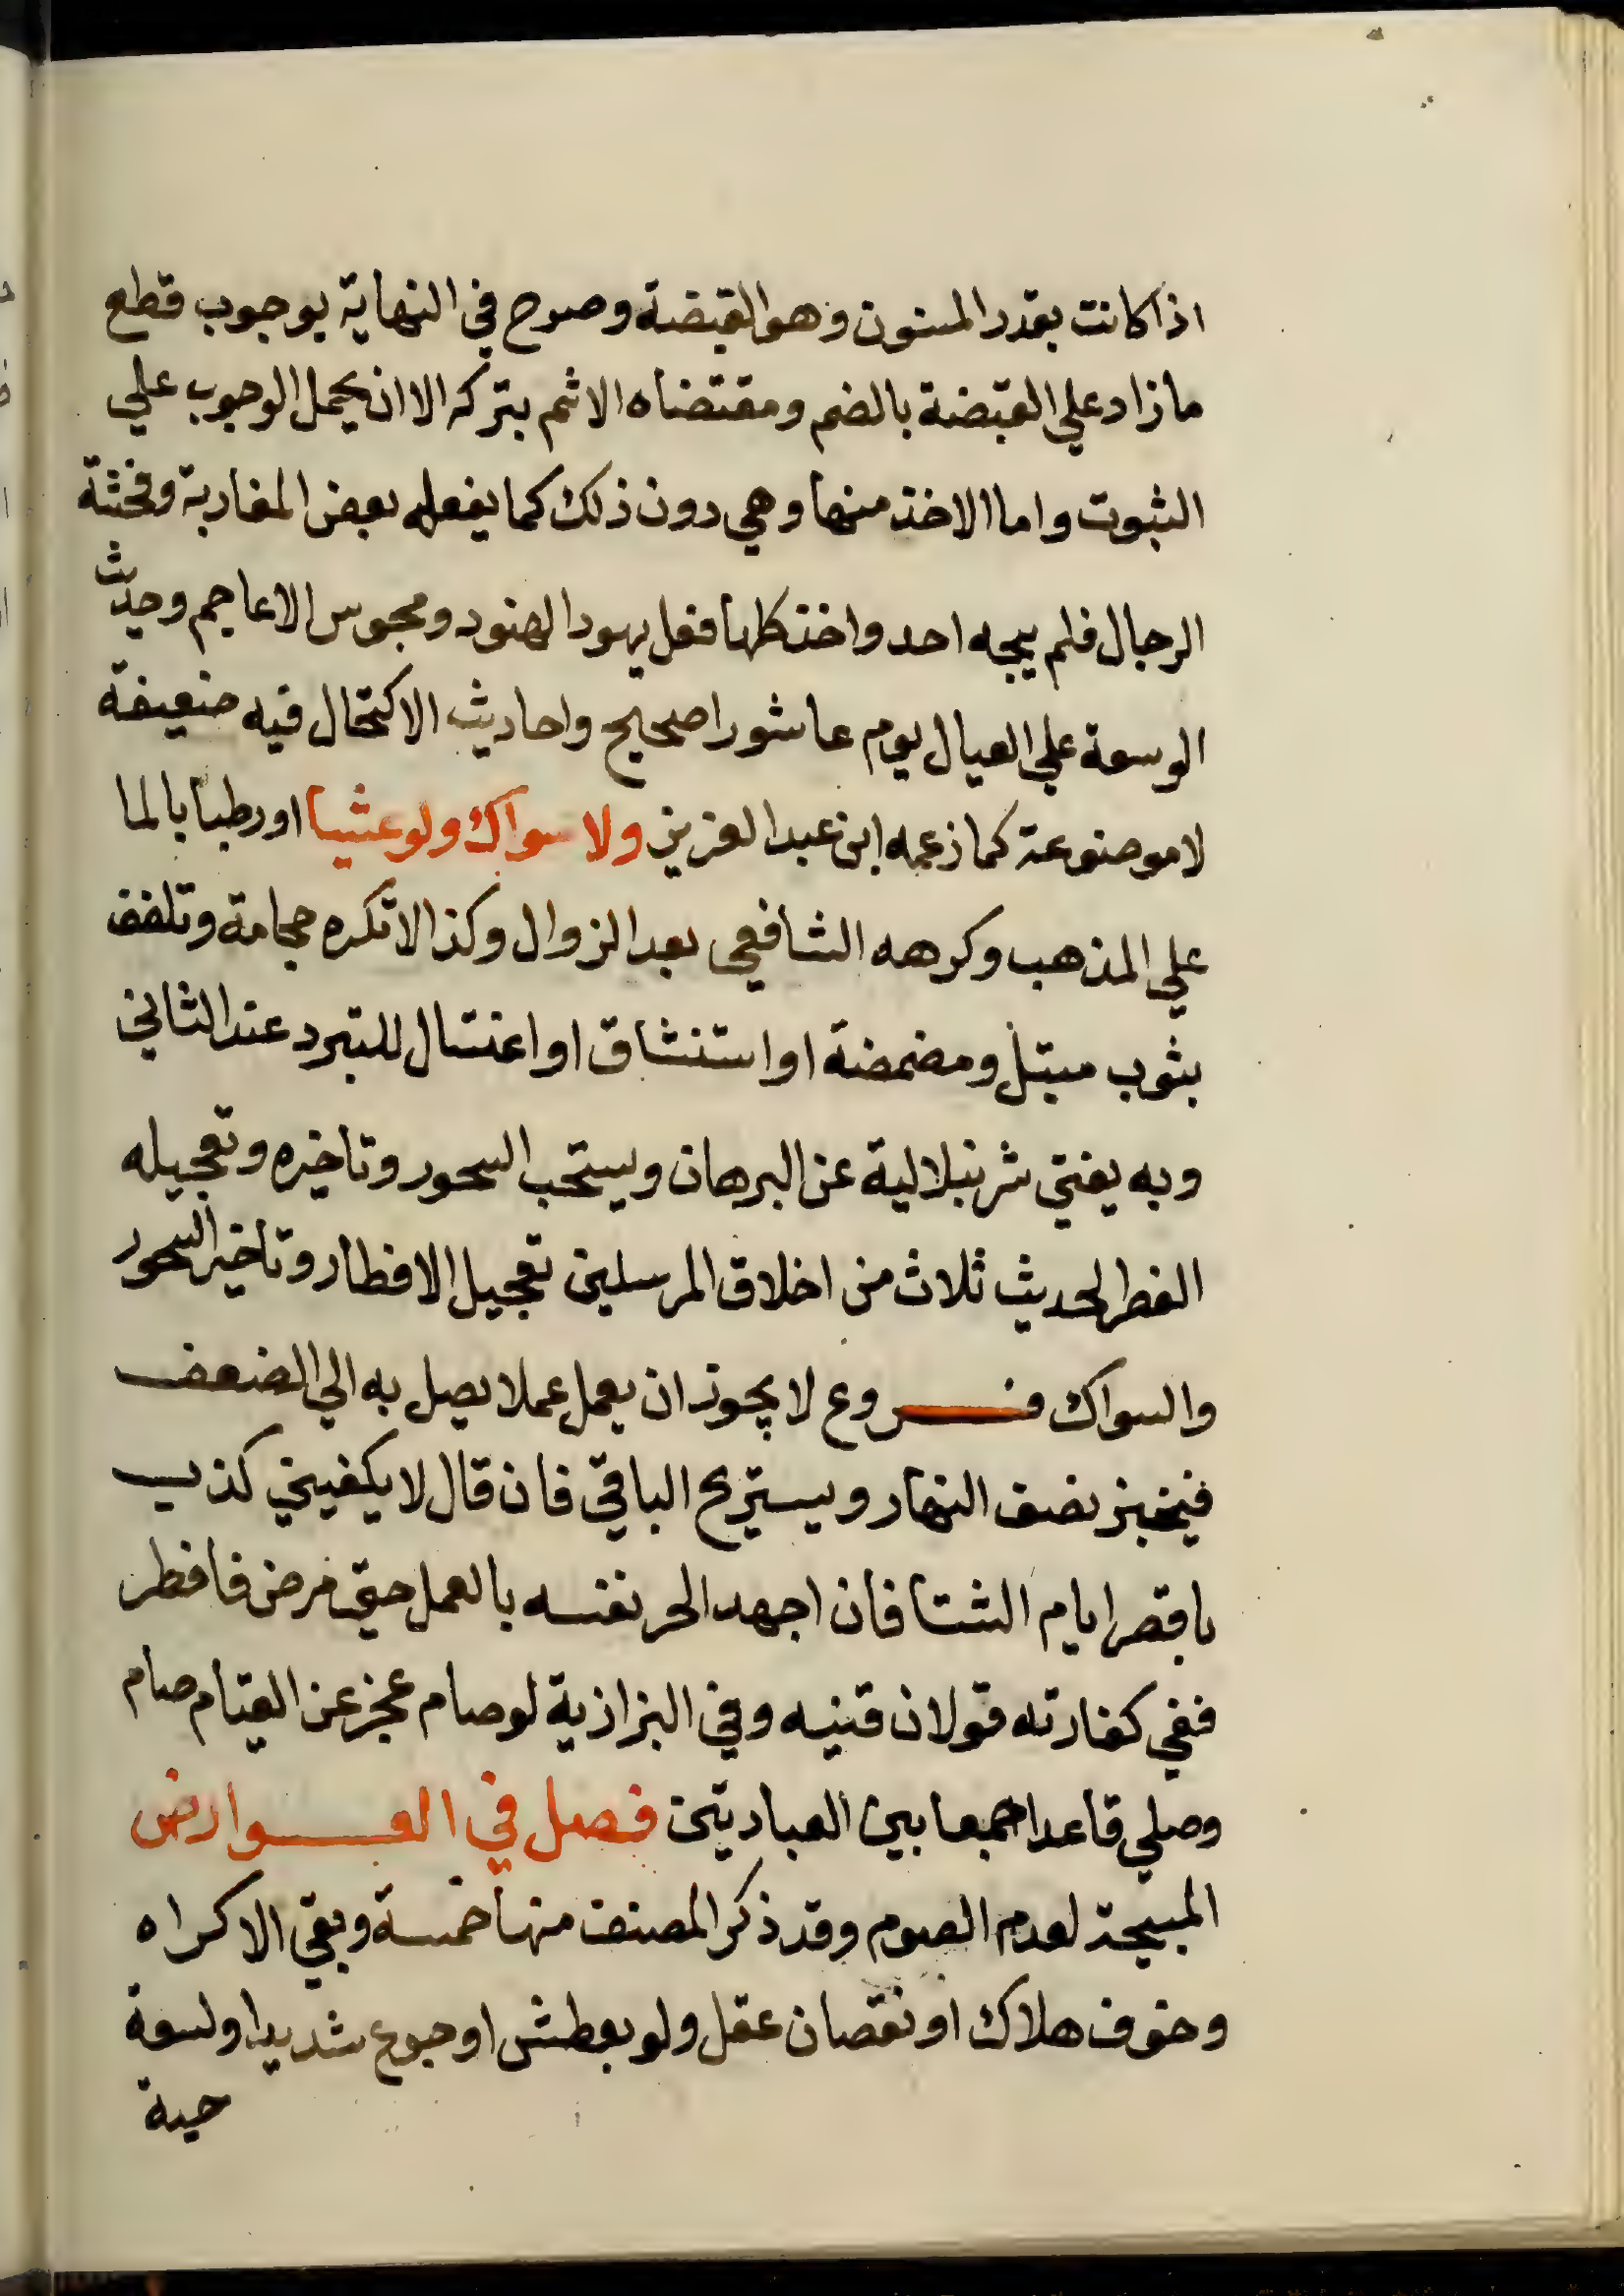 اذا كانت بقدر المسنون وهو القبضة وصرح في النهاية بوجوب قطع
ما زاد علي القبضة بالضم ومقتضاه الاثم بتركه الا ان يحمل الوجوب علي
الثبوت واما الاخذ منها وهي دون ذلك كما يفعله بعض المغاربة ومخنثة
الرجال فلم يبحه احد واخذ كلها فعل يهود الهنود ومجوس الاعاجم وحديث
الوسعة علي العيال يوم عاشورا صحيح واحاديث الاكتحال فيه ضعيفة
لا موضوعة كما زعمه ابن عبد العزيز ولا سواك ولو عشيا او رطبا بالما
علي المذهب وكرهه الشافعي بعد الزوال وكذا لا تكره حجامة وتلفف
بثوب مبتل ومضمضة او استنشاق او اغتسال للتبرد عند الثاني
وبه يفتي شرنبلالية عن البرهان ويستحب السحور وتاخيره وتعجيله
الفطر لحديث ثلاث من اخلاق المرسلين تعجيل الافطار وتاخير السحور
والسواك فروع لا يجوز ان يعمل عملا يصل به الي الضعف
فيخبز نصف النهار ويستريح الباقي فان قال لا يكفيني كذب
باقصر ايام الشتا فان اجهد الحر نفسه بالعمل حتي مرض فافطر
ففي كفارته قولان قنيه وفي البزازية لو صام عجز عن القيام صام
وصلي قاعدا جمعا بين العبادتين فصل في العوارض
المبيحة لعدم الصوم وقد ذكر المصنف منها خمسة وبقي الاكراه
وخوف هلاك او نقصان عقل ولو بعطش او جوع شديد او لسعة
حية